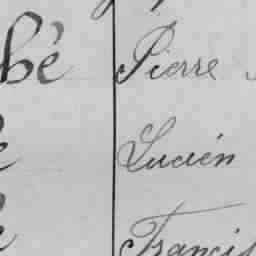 bé Pierre
Lucién
Francis